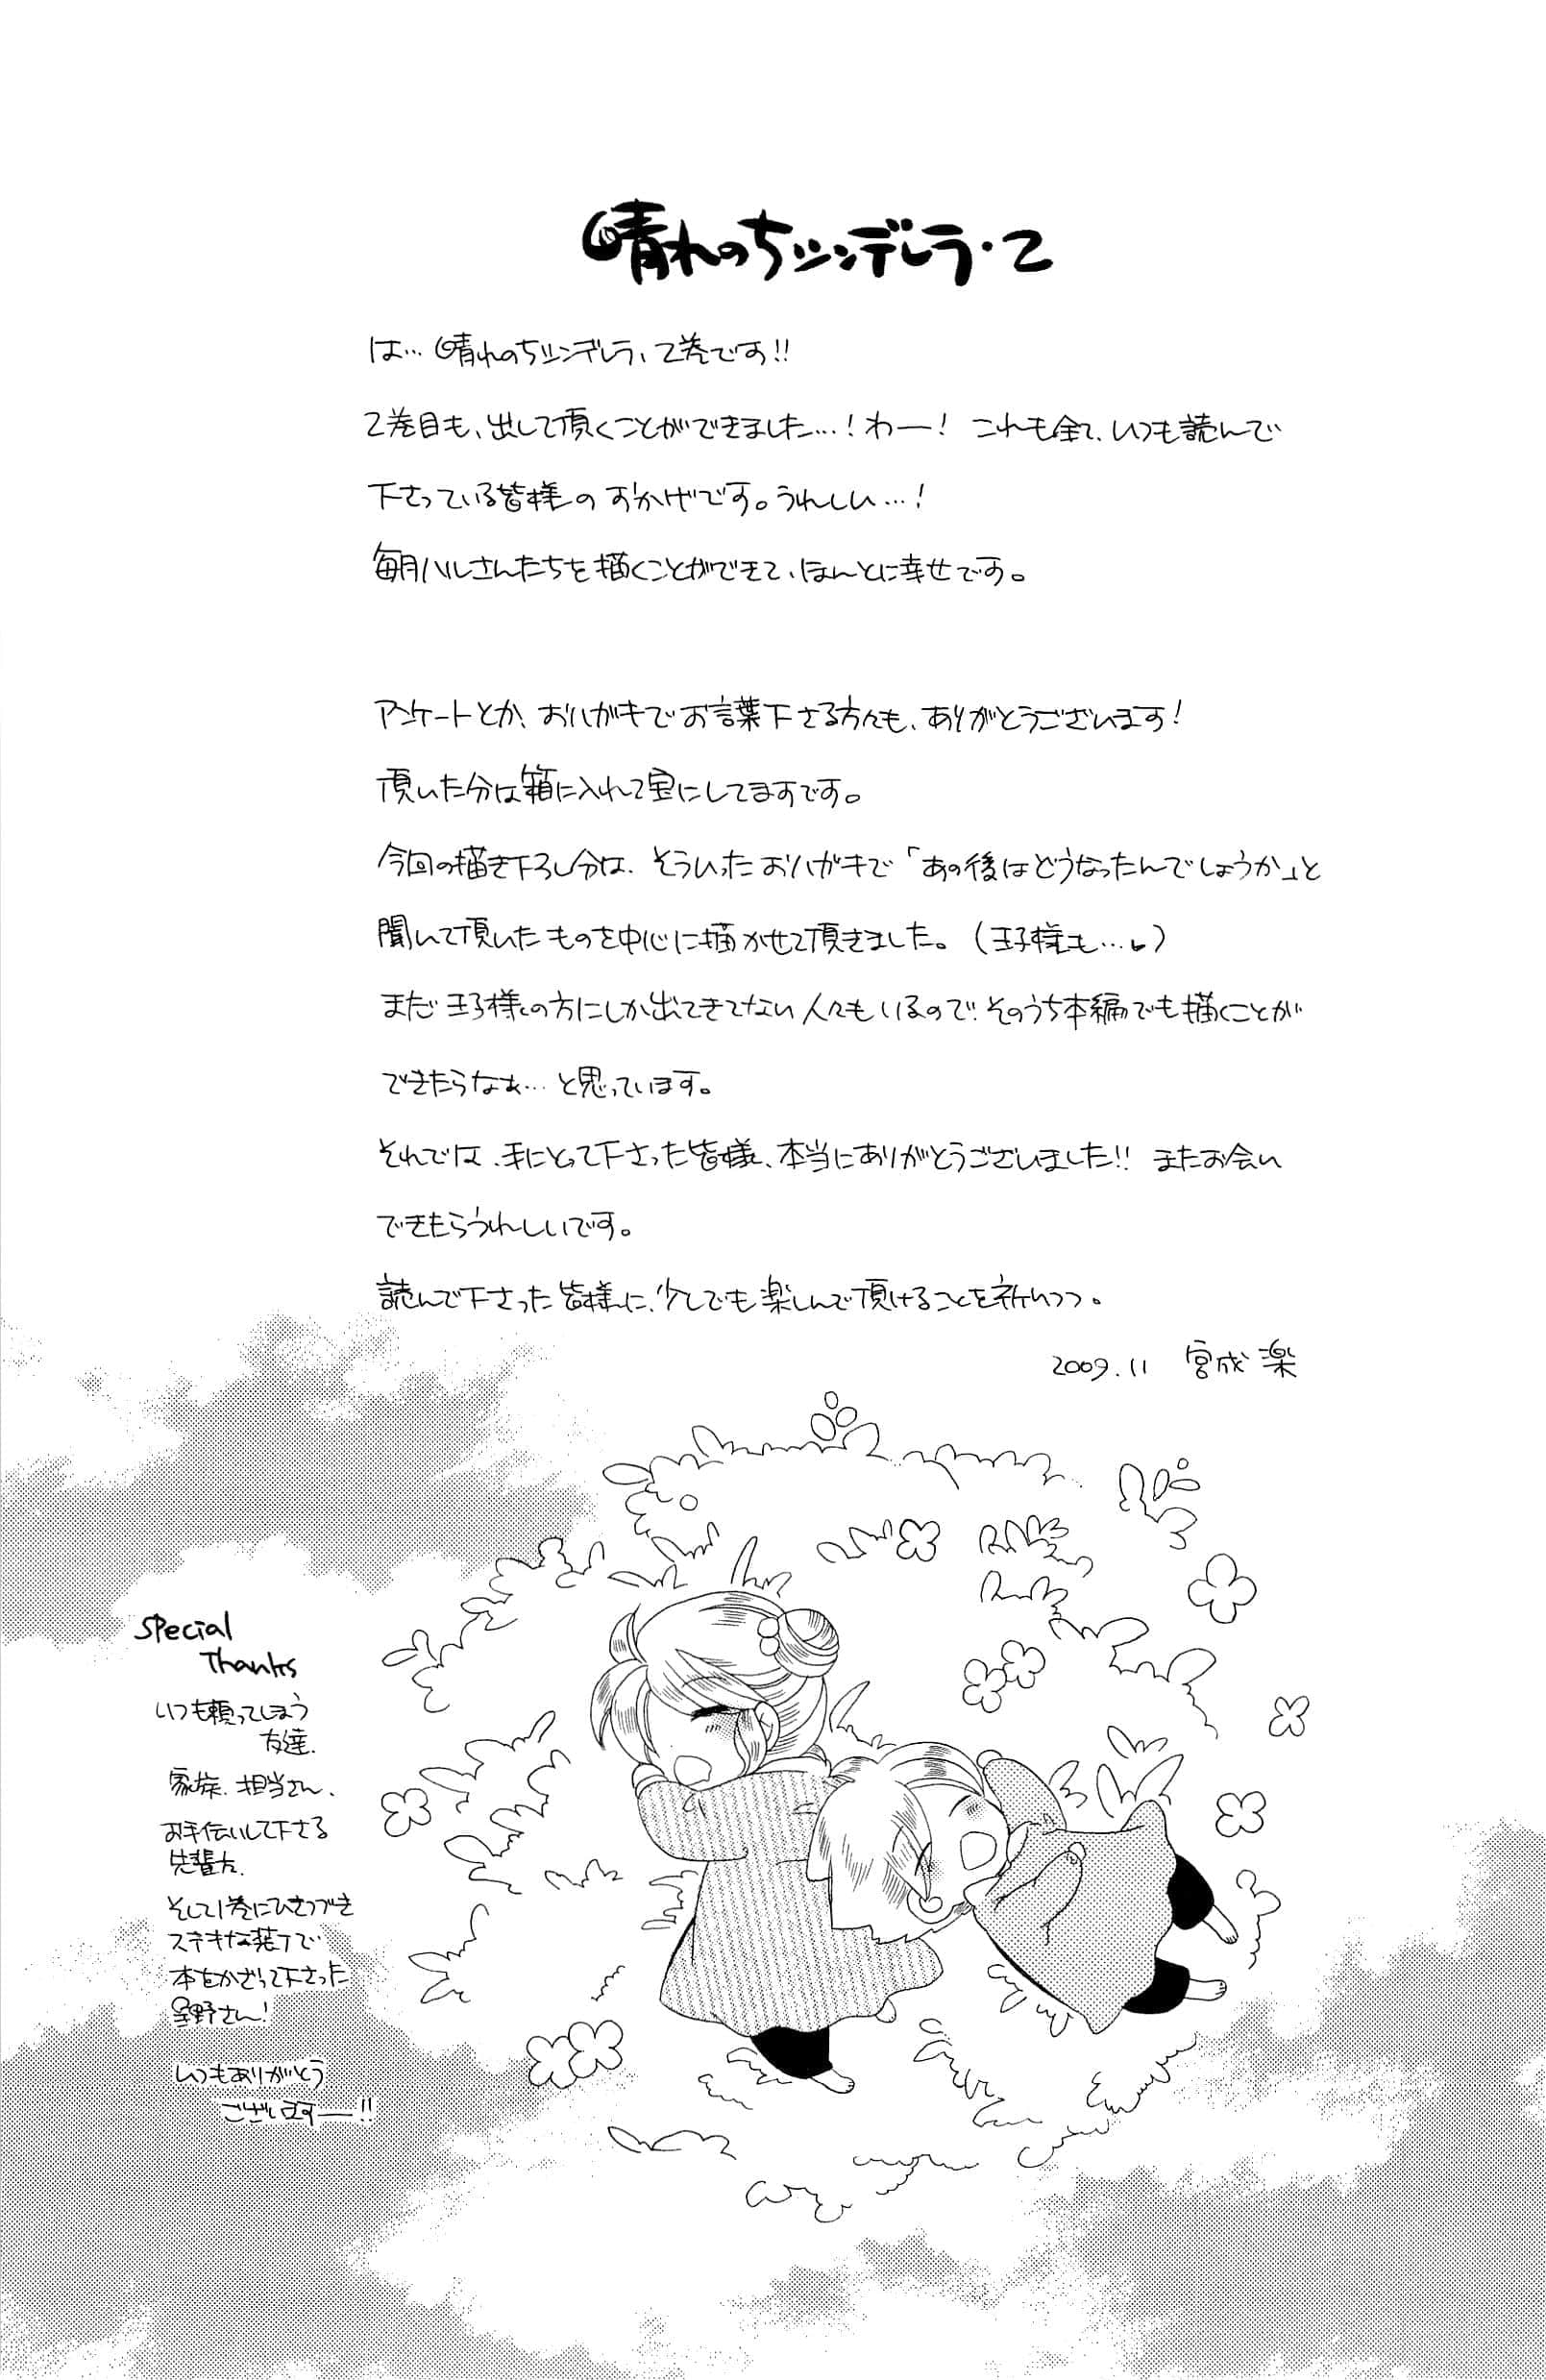 晴れのちシンデレラ・2
は…晴れのちシンデレラ、2巻です!!
2巻目も、出して頂くことができました…!わー! これも全て、いつも読んで
下さっている皆様のおかげです。うれしい…!
毎月ハルさんたちを描くことができて、ほんとに幸せです。
アンケートとか、おハガキでお言葉下さる方々も、ありがとうございます!
頂いた分は箱に入れて宝にしてますです。
今回の描き下ろし分は、そういったおハガキで「あの後はどうなったんでしょうか」と
聞いて頂いたものを中心に描かせて頂きました。(王子様も…)
まだ王子様の方にしか出てきてない人々もいるので、そのうち本編でも描くことが
できたらなぁ…と思っています。
それでは、手にとって下さった皆様、本当にありがとうございました!! またお会い
できたらうれしいです。
読んで下さった皆様に、少しでも楽しんで頂けることを祈いつつ。
2009.11 宮成 楽
Special
Thanks
いつも頼ってしまう
友達、
家族、担当さん、
お手伝いして下さる
先輩方、
そして1巻にひきつづき
ステキな装丁で
本をかざって下さった
星野さん!
いつもありがとう
ございますー!!